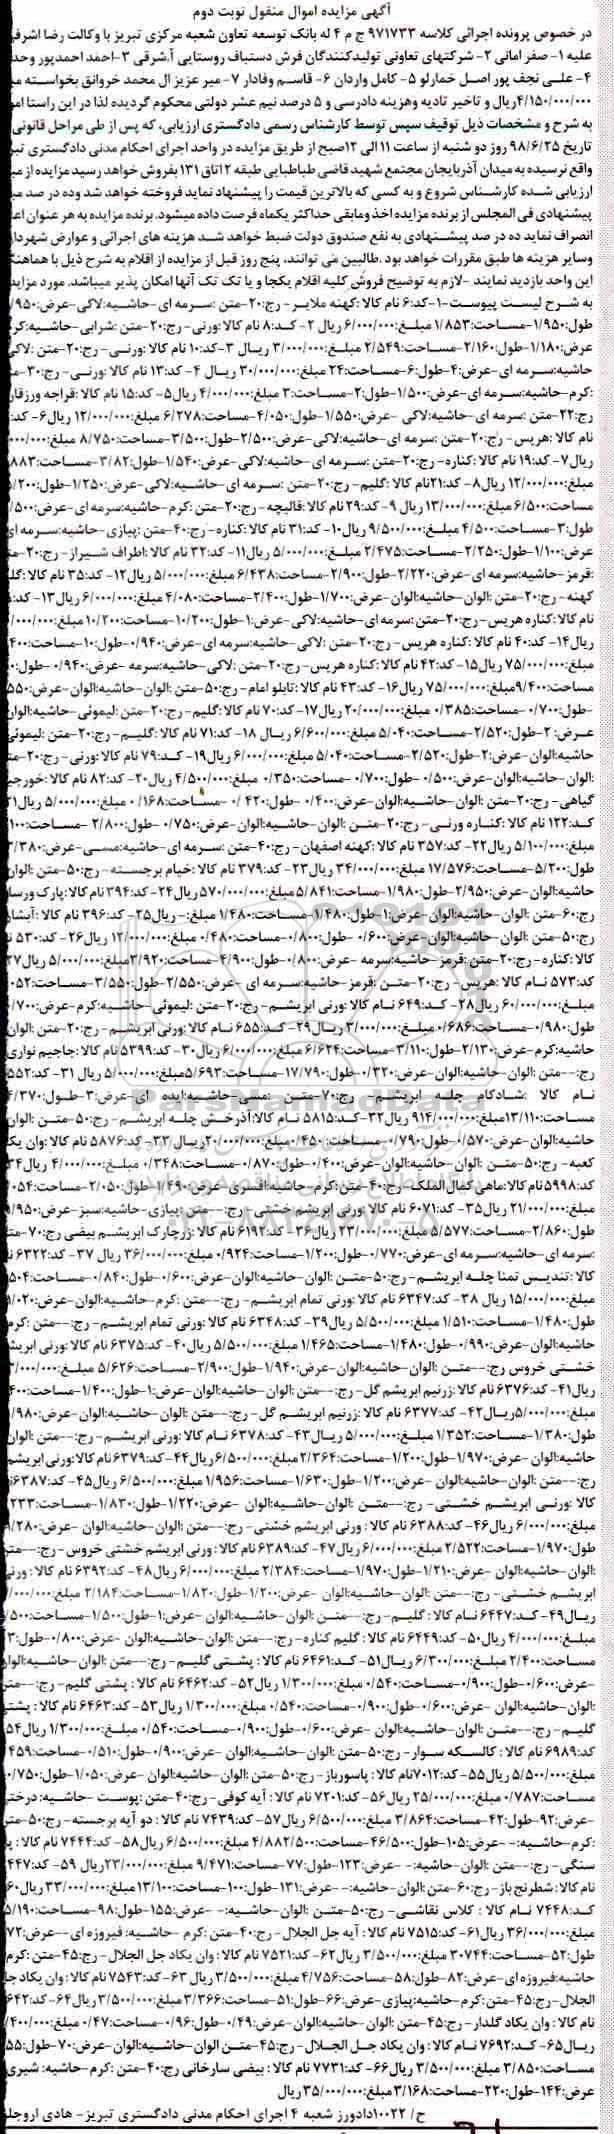 آگهی مزایده اموال منقول نوبت دوم
در خصوص پرونده اجرائی کلاسه ۹۷۱۷۳۳ ج م ۴ له بانک توسعه تعاون شعبه مرکزی تبریز با وکالت رضا اشرفی
علیه ۱- صفر امانی ۲- شرکتهای تعاونی تولیدکنندگان فرش دستباف روستایی آ.شرقی ۳-احمد احمدپور وحد
۴- علی نجف پور اصل خمارلو ۵- کامل واردان ۶- قاسم وفادار ۷- میر عزیز ال محمد خروانق بخواسته
۴/۱۵۰/۰۰۰/۰۰۰ریال و تاخیر تادیه وهزینه دادرسی و ۵ درصد نیم عشر دولتی محکوم گردیده لذا در این راستا
به شرح و مشخصات ذیل توقیف سپس توسط کارشناس رسمی دادگستری ارزیابی، که پس از طی مراحل قانونی
تاریخ ۹۸/۶/۲۵ روز دو شنبه از ساعت ۱۱ الی ۱۲صبح از طریق مزایده در واحد اجرای احکام مدنی دادگستری
واقع نرسیده به میدان آذربایجان مجتمع شهید قاضی طباطبایی طبقه ۲اتاق ۱۳۱ بفروش خواهد رسید مزایده از
ارزیابی شده کارشناس شروع و به کسی که بالاترین قیمت را پیشنهاد نماید فروخته خواهد شد وده در صد
پیشنهادی فی المجلس از برنده مزایده اخذ ومابقی حداکثر یکماه فرصت داده میشود. برنده مزایده به هر عنوان
انصراف نماید ده در صد پیشنهادی به نفع صندوق دولت ضبط خواهد شد هزینه های اجرائی و عوارض
وسایر هزینه ها طبق مقررات خواهد بود .طالبین می توانند، پنج روز قبل از مزایده از اقلام به شرح ذیل با
این واحد بازدید نمایند -لازم به توضیح فروش کلیه اقلام یکجا و یا تک تک آنها امکان پذیر میباشد. مورد
به شرح لیست پیوست -۱-کد:۶ نام کالا :کهنه ملایر- رج:۲۰-متن :سرمه ای-حاشیه:لاکی-عرض:
طول:۱/۹۵۰-مساحت:۱/۸۵۳ مبلغ:۶/۰۰۰/۰۰۰ ریال ۲- کد:۸ نام کالا :ورنی- رج:۲۰-متن :شرابی-حاشیه:
عرض:۱/۱۸۰-طول:۲/۱۶۰-مساحت:۲/۵۴۹ مبلغ:۳/۰۰۰/۰۰۰ ریال ۳-کد:۱۰ نام کالا :ورنی- رج:۲۰-متن :لاکی
حاشیه:سرمه ای-عرض:۴-طول:۶-مساحت:۲۴ مبلغ:۳۰/۰۰۰/۰۰۰ ریال ۴- کد:۱۳ نام کالا :ورنی- رج:۳۰
:کرم-حاشیه:سرمه ای-عرض:۱/۵۰۰-طول:۲-مساحت:۳ مبلغ:۴/۰۰۰/۰۰۰ ریال۵- کد:۱۵ نام کالا :قراجه
رج:۲۲-متن :سرمه ای-حاشیه:لاکی -عرض:۱/۵۵۰-طول:۴/۰۵۰-مساحت:۶/۲۷۸ مبلغ:۱۲/۰۰۰/۰۰۰ ریال۶- کد:
نام کالا :هریس- رج:۲۰-متن :سرمه ای-حاشیه:لاکی-عرض:۲/۵۰۰-طول:۳/۵۰۰-مساحت:۸/۷۵۰ مبلغ:
ریال۷- کد:۱۹ نام کالا :کناره- رج:۲۰-متن :سرمه ای-حاشیه:لاکی-عرض:۱/۵۴۰-طول:۳/۸۲-مساحت:
مبلغ:۱۲/۰۰۰/۰۰۰ ریال۸- کد:۲۱نام کالا :گلیم- رج:۲۰-متن :سرمه ای-حاشیه:لاکی-عرض:۱/۲۵۰-طول:
مساحت:۶/۵۰۰ مبلغ:۱۳/۰۰۰/۰۰۰ ریال ۹- کد:۲۹ نام کالا :قالیچه- رج:۲۰-متن :کرم-حاشیه:سرمه ای-عرض:
طول:۳-مساحت:۴/۵۰۰ مبلغ:۹/۵۰۰/۰۰۰ ریال۱۰- کد:۳۱ نام کالا :کناره- رج:۴۰-متن :پیازی-حاشیه:سرمه ای
عرض:۱/۱۰۰-طول:۲/۲۵۰-مساحت:۲/۴۷۵ مبلغ:۵/۰۰۰/۰۰۰ ریال۱۱- کد:۳۲ نام کالا :اطراف شیراز- رج:۲۰
:قرمز-حاشیه:سرمه ای-عرض:۲/۲۲۰-طول:۲/۹۰۰-مساحت:۶/۴۳۸ مبلغ:۵/۰۰۰/۰۰۰ ریال۱۲- کد:۳۵ نام کالا
کهنه - رج:۲۰-متن :الوان-حاشیه:الوان-عرض:۱/۷۰۰-طول:۲/۴۰۰-مساحت:۴/۰۸۰ مبلغ:۶/۰۰۰/۰۰۰ ریال۱۳- کد:
نام کالا :کناره هریس- رج:۲۰-متن :سرمه ای-حاشیه:لاکی-عرض:۱-طول:۱۰/۲۰۰-مساحت:۱۰/۲۰۰ مبلغ:
ریال۱۴- کد:۴۰ نام کالا :کناره هریس- رج:۲۰-متن :لاکی-حاشیه:سرمه ای-عرض:۰/۹۴۰-طول:۱۰-مساحت:
مبلغ:۷۵/۰۰۰/۰۰۰ ریال۱۵- کد:۴۲ نام کالا :کناره هریس- رج:۲۰-متن :لاکی-حاشیه:سرمه -عرض:۰/۹۴۰-طول:
مساحت:۹/۴۰۰مبلغ:۷۵/۰۰۰/۰۰۰ ریال۱۶- کد:۴۳ نام کالا :تابلو امام- رج:۵۰-متن :الوان-حاشیه:الوان-عرض:
-طول:۰/۷۰۰-مساحت:۰/۳۸۵ مبلغ:۲۰/۰۰۰/۰۰۰ ریال۱۷- کد:۷۰ نام کالا :گلیم- رج:۲۰-متن :لیموئی-حاشیه:الوان
عرض: ۲-طول:۲/۵۲۰-مساحت:۵/۰۴۰ مبلغ:۶/۶۰۰/۰۰۰ ریال ۱۸- کد:۷۱ نام کالا :گلیم- رج:۲۰-متن :لیموئی
حاشیه:الوان-عرض:۲-طول:۲/۵۲۰-مساحت:۵/۰۴۰ مبلغ:۶/۰۰۰/۰۰۰ ریال۱۹- کد:۷۹ نام کالا :ورنی- رج:۲۰
:الوان-حاشیه:الوان-عرض:۰/۵۰۰ -طول:۰/۷۰۰-مساحت:۰/۳۵۰ مبلغ:۴/۵۰۰/۰۰۰ ریال۲۰- کد:۸۲ نام کالا :خورجین
گیاهی- رج:۲۰-متن :الوان-حاشیه:الوان-عرض:۰/۴۰۰ -طول:۰/۴۲۰ -مساحت:۰/۱۶۸ مبلغ:۵/۰۰۰/۰۰۰ ریال
کد:۱۲۲ نام کالا :کناره ورنی- رج:۲۰-متن :الوان-حاشیه:الوان-عرض:۰/۷۵۰ -طول:۲/۸۰۰ -مساحت:
مبلغ:۵/۱۰۰/۰۰۰ ریال۲۲- کد:۳۵۷ نام کالا :کهنه اصفهان- رج:۴۰-متن :سرمه ای-حاشیه:مسی-عرض:
طول:۵/۲۰۰-مساحت:۱۷/۵۷۶ مبلغ:۳۴/۰۰۰/۰۰۰ ریال۲۳- کد:۳۷۹ نام کالا :خیام برجسته- رج:۵۰-متن :الوان
حاشیه:الوان-عرض:۲/۹۵۰-طول:۱/۹۸۰-مساحت:۵/۸۴۱مبلغ:۵۷۰/۰۰۰/۰۰۰ ریال۲۴- کد:۳۹۴ نام کالا :پارک
رج:۶۰-متن :الوان-حاشیه:الوان-عرض:۱-طول:۱/۴۸۰-مساحت:۱/۴۸۰ مبلغ:- ریال۲۵- کد:۳۹۶ نام کالا :آبشار
رج:۵۰-متن :الوان-حاشیه:الوان-عرض:۰/۶۰۰ -طول:۰/۸۰۰-مساحت:۰/۴۸۰ مبلغ:۱۲/۰۰۰/۰۰۰ ریال۲۶- کد:۵۳۰
کالا :کناره- رج:۲۰-متن :قرمز-حاشیه:سرمه -عرض:۰/۸۰۰-طول:۴/۹۰۰-مساحت:۳/۹۲۰مبلغ:۵/۰۰۰/۰۰۰ ریال
کد:۵۷۳ نام کالا :هریس- رج:۲۰-متن :قرمز-حاشیه:سرمه ای -عرض:۲/۵۵۰-طول:۳/۵۵۰-مساحت:
مبلغ:۶۰/۰۰۰/۰۰۰ ریال۲۸- کد:۶۴۹ نام کالا :ورنی ابریشم- رج:۲۰-متن :لیموئی-حاشیه:کرم-عرض:
طول:۰/۹۸۰-مساحت:۰/۶۸۶ مبلغ:۳/۰۰۰/۰۰۰ ریال۲۹- کد:۶۵۵ نام کالا :ورنی ابریشم - رج:۲۰-متن :الوان
حاشیه:کرم-عرض:۲/۱۳۰-طول:۳/۱۱۰-مساحت:۶/۶۲۴ مبلغ:۶/۰۰۰/۰۰۰ ریال۳۰- کد:۵۳۹۹ نام کالا :جاجیم نواری
رج:---متن :الوان-حاشیه:الوان-عرض:۰/۳۲۰-طول:۱۷/۷۹۰-مساحت:۵/۶۹۳مبلغ:۵/۰۰۰/۰۰۰ ریال ۳۱- کد:
نام کالا :شادکام چله ابریشم- رج:۷۰-متن :مسی-حاشیه:ایده ای-عرض:۳-طول:
مساحت:۱۳/۱۱۰مبلغ:۹۱۴/۰۰۰/۰۰۰ ریال۳۲-کد:۵۸۱۵ نام کالا :آذرخش چله ابریشم- رج:۵۰-متن :الوان
حاشیه:الوان-عرض:۰/۵۷۰-طول:۰/۷۹۰-مساحت:۰/۴۵۰مبلغ:۲۰/۰۰۰/۰۰۰ریال۳۳- کد:۵۸۷۶ نام کالا :وان یکاد
کعبه- رج:۵۰-متن :الوان-حاشیه:الوان-عرض:۰/۴۰۰-طول:۰/۸۷۰-مساحت:۰/۳۴۸ مبلغ:۴/۰۰۰/۰۰۰ ریال
کد:۵۹۹۸ نام کالا :ماهی کمال الملک- رج:۴۰-متن :کرم-حاشیه:افسری-عرض:۱/۴۹۰-طول:۲/۰۵۰-مساحت:
مبلغ:۲۱/۰۰۰/۰۰۰ ریال۳۵- کد:۶۰۷۱ نام کالا :ورنی ابریشم خشتی - رج:---متن :پیازی-حاشیه:سبز-عرض:
طول:۲/۸۶۰-مساحت:۵/۵۷۷ مبلغ:۲۳/۰۰۰/۰۰۰ ریال۳۶- کد:۶۱۹۲ نام کالا :زرچارک ابریشم بیضی رج:۷۰
:سرمه ای-حاشیه:سرمه ای-عرض:۰/۷۷۰-طول:۱/۲۰۰-مساحت:۰/۹۲۴ مبلغ:۳۶/۰۰۰/۰۰۰ ریال ۳۷- کد:۶۳۲۲
کالا :تندیس تمنا چله ابریشم- رج:۵۰-متن :الوان-حاشیه:الوان-عرض:۰/۶۰۰-طول:۰/۸۴۰-مساحت:
مبلغ:۱۵/۰۰۰/۰۰۰ ریال ۳۸- کد:۶۳۴۷ نام کالا :ورنی تمام ابریشم- رج:---متن :کرم -حاشیه:الوان-عرض:
طول:۱/۴۸۰-مساحت:۱/۵۱۰ مبلغ:۵/۵۰۰/۰۰۰ ریال۳۹- کد:۶۳۴۸ نام کالا :ورنی تمام ابریشم- رج:---متن :کرم
حاشیه:الوان-عرض:۰/۹۹۰-طول:۱/۴۸۰-مساحت:۱/۴۶۵ مبلغ:۵/۵۰۰/۰۰۰ ریال۴۰- کد:۶۳۷۵ نام کالا :ورنی
خشتی خروس رج:---متن :الوان-حاشیه:الوان-عرض:۱/۹۴۰-طول:۲/۹۰۰-مساحت:۵/۶۲۶ مبلغ:
ریال۴۱- کد:۶۳۷۶ نام کالا :زرنیم ابریشم گل - رج:---متن :الوان-حاشیه:الوان-عرض:۱-طول:۱/۴۰۰-مساحت:
مبلغ:۵/۰۰۰/۰۰۰ریال۴۲- کد:۶۳۷۷ نام کالا :زرنیم ابریشم گل - رج:---متن :الوان-حاشیه:الوان-عرض:
طول:۱/۳۸۰-مساحت:۱/۳۵۲ مبلغ:۵/۰۰۰/۰۰۰ ریال۴۳- کد:۶۳۷۸ نام کالا :ورنی ابریشم- رج:---متن :الوان
حاشیه:الوان-عرض:۱/۹۷۰-طول:۱/۲۰۰-مساحت:۲/۳۶۴ مبلغ:۶/۵۰۰/۰۰۰ ریال۴۴- کد:۶۳۷۹ نام کالا :ورنی ابریشم
رج:---متن :الوان-حاشیه:الوان -عرض:۱/۲۰۰-طول:۱/۶۳۰-مساحت:۱/۹۵۶ مبلغ:۶/۵۰۰/۰۰۰ ریال۴۵- کد:۶۳۸۷
کالا :ورنی ابریشم خشتی- رج:---متن :الوان-حاشیه:الوان -عرض:۱/۲۲۰-طول:۱/۸۳۰-مساحت:
مبلغ:۶/۰۰۰/۰۰۰ ریال۴۶- کد:۶۳۸۸ نام کالا : ورنی ابریشم خشتی- رج:---متن :الوان-حاشیه:الوان -عرض:
طول:۱/۹۷۰-مساحت:۲/۵۲۲ مبلغ:۶/۰۰۰/۰۰۰ ریال۴۷- کد:۶۳۸۹ نام کالا : ورنی ابریشم خشتی خروس- رج:---
:الوان-حاشیه:الوان -عرض:۱/۲۱۰-طول:۱/۹۷۰-مساحت:۲/۳۸۴ مبلغ:۶/۰۰۰/۰۰۰ ریال۴۸- کد:۶۳۹۲ نام کالا : ورنی
ابریشم خشتی- رج:---متن :الوان-حاشیه:الوان -عرض:۱/۲۰۰-طول:۱/۸۲۰-مساحت:۲/۱۸۴ مبلغ:
ریال۴۹- کد:۶۴۴۷ نام کالا : گلیم- رج:---متن :الوان-حاشیه:الوان -عرض:۱-طول:۱/۵۰۰-مساحت:
مبلغ:۴/۰۰۰/۰۰۰ ریال۵۰- کد:۶۴۴۹ نام کالا : گلیم کناره- رج:---متن :الوان-حاشیه:الوان -عرض:۰/۸۰۰-طول:۳
مساحت:۲/۴۰۰ مبلغ:۶/۳۰۰/۰۰۰ ریال۵۱- کد:۶۴۶۱ نام کالا : پشتی گلیم- رج:---متن :الوان-حاشیه:الوان
-عرض:۰/۶۰۰-طول:۰/۹۰۰-مساحت:۰/۵۴۰ مبلغ:۱/۳۰۰/۰۰۰ ریال۵۲- کد:۶۴۶۲ نام کالا : پشتی گلیم- رج:---
:الوان-حاشیه:الوان -عرض:۰/۶۰۰-طول:۰/۹۰۰-مساحت:۰/۵۴۰ مبلغ:۱/۳۰۰/۰۰۰ ریال۵۳- کد:۶۴۶۳ نام کالا : پشتی
گلیم- رج:---متن :الوان-حاشیه:الوان -عرض:۰/۶۰۰-طول:۰/۹۰۰-مساحت:۰/۵۴۰ مبلغ:۱/۳۰۰/۰۰۰ ریال۵۴
کد:۶۹۸۹ نام کالا : کالسکه سوار- رج:۵۰-متن :الوان-حاشیه:الوان -عرض:۰/۹۰۰-طول:۰/۵۱۰-مساحت:
مبلغ:۵/۵۰۰/۰۰۰ ریال۵۵- کد:۷۰۱۲نام کالا : پاسورباز- رج:۵۰-متن :الوان-حاشیه:الوان -عرض:۱/۰۵۰-طول:
مساحت:۰/۷۸۷ مبلغ:۲۵/۰۰۰/۰۰۰ ریال۵۶- کد:۷۲۰۱ نام کالا : آیه کوفی- رج:۴۰-متن :پوست -حاشیه: درختی
-عرض:۹۲-طول:۴۲-مساحت:۳/۸۶۴ مبلغ:۶/۵۰۰/۰۰۰ ریال۵۷- کد:۷۴۳۹ نام کالا : دو آیه برجسته- رج:۵۰
:کرم-حاشیه:- -عرض:۱۰۵-طول:۴۶/۵۰۰-مساحت:۴/۸۸۲/۵۰۰ مبلغ:۶/۵۰۰/۰۰۰ ریال۵۸- کد:۷۴۴۴ نام کالا :
سنگی- رج:---متن :الوان-حاشیه:- -عرض:۱۲۳-طول:۷۷-مساحت:۹/۴۷۱ مبلغ:۲۳/۰۰۰/۰۰۰ریال ۵۹- کد:
نام کالا : شطرنج باز- رج:۶۰-متن :الوان-حاشیه:- -عرض:۱۳۱-طول:۱۰۰-مساحت:۱۳/۱۰۰مبلغ:۳۳/۰۰۰/۰۰۰ ریال
کد:۷۴۴۸ نام کالا : کلاس نقاشی- رج:۵۰-متن :الوان-حاشیه:- -عرض:۱۵۵-طول:۹۸-مساحت:
مبلغ:۳۶/۰۰۰/۰۰۰ ریال۶۱- کد:۷۵۱۵ نام کالا : آیه جل الجلال- رج:۴۰-متن :کرم -حاشیه: فیروزه ای-عرض:
طول:۵۲-مساحت:۳۰۷۴۴ مبلغ:۳/۵۰۰/۰۰۰ ریال۶۲- کد:۷۵۲۱ نام کالا : وان یکاد جل الجلال- رج:۴۵-متن :کرم
حاشیه:فیروزه ای-عرض:۸۲-طول:۵۸-مساحت:۴/۷۵۶ مبلغ:۳/۵۰۰/۰۰۰ ریال ۶۳- کد:۷۵۴۳ نام کالا : وان یکاد جل
الجلال- رج:۴۵-متن :کرم-حاشیه:پیازی-عرض:۶۶-طول:۵۱-مساحت:۳/۳۶۶مبلغ:۳/۵۰۰/۰۰۰ریال۶۴- کد:
نام کالا : وان یکاد گلدار- رج:۴۵-متن :الوان-حاشیه:الوان-عرض:۰/۴۹-طول:۰/۹۶-مساحت:۰/۴۷ مبلغ:
ریال۶۵- کد:۷۶۹۲ نام کالا : وان یکاد جل الجلال- رج:۴۵-متن :الوان-حاشیه:الوان-عرض:۷۰-طول:۵۵
مساحت:۳/۸۵۰ مبلغ:۳/۵۰۰/۰۰۰ ریال۶۶- کد:۷۷۳۱ نام کالا : بیضی سارخانی رج:۴۰-متن :کرم-حاشیه: شیری
عرض:۱۴۴-طول:۲۲۰-مساحت:۳/۱۶۸مبلغ:۳۵/۰۰۰/۰۰۰ریال
ح/ ۱۰۰۲۲دادورز شعبه ۴ اجرای احکام مدنی دادگستری تبریز- هادی اروجلو
ParsNamadData
۰۲۱-۸۸۳۴۹۶۷۰-۵